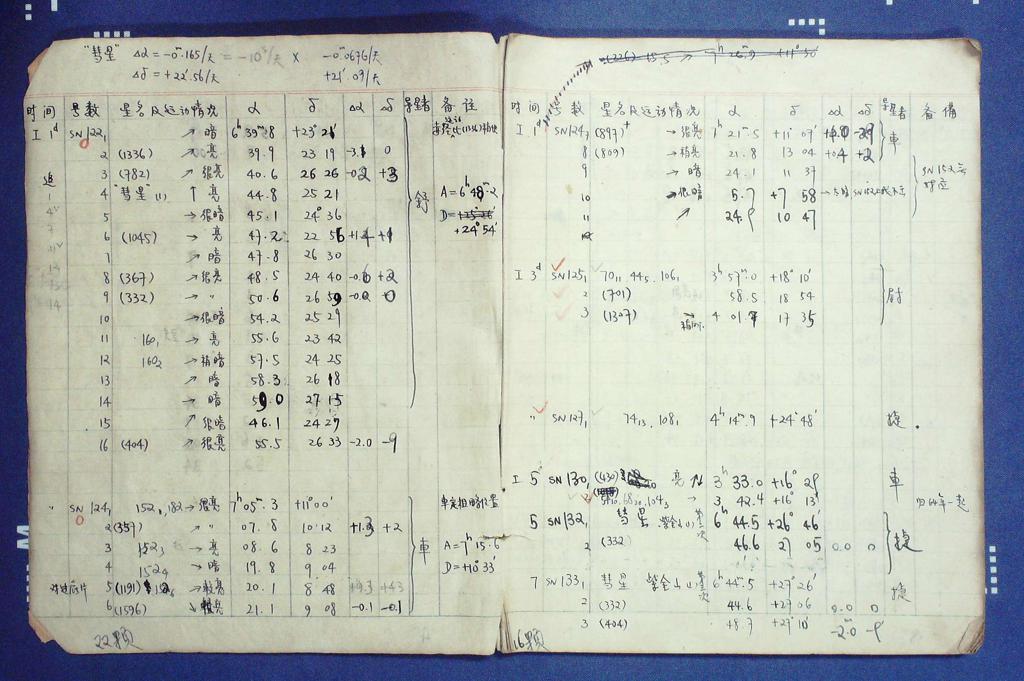 "彗星" Δα = -0ᵐ.165/天 = -10ˢ/天 × -0ᵐ.0676/天
Δδ = +22′.56/天 +21′.09/天
时间 号数 星名及运动情况 α δ Δα Δδ 导星者 备注
I 1ᵈ SN122₁ ↗ 暗 6ʰ 39ᵐ.8 +23° 21′
2 (1336) → 亮 39.9 23 19 -3.1 0
3 (782) ↗ 很亮 40.6 26 26 -0.2 +3
4 "彗星" (1) ↑ 亮 44.8 25 21 A=6ʰ48ᵐ.2
5 → 很暗 45.1 24° 36 舒
6 (1045) → 亮 47.2 22 56 +1.4 +1 +24°54′
7 → 暗 47.8 26 30
8 (367) → 很亮 48.5 24 40 -0.6 +2
9 (332) → 〃 50.6 26 59 -0.0 0
10 → 很暗 54.2 25 29
11 160₁ → 亮 55.6 23 42
12 160₂ → 稍暗 57.5 24 25
13 ↗ 暗 58.3 26 18
14 → 暗 59.0 27 15
15 ↗ 很暗 46.1 24 29
16 (404) → 很亮 55.5 26 33 -2.0 -9
〃 SN124₁ 152₁,182 → 很亮 7ʰ 05ᵐ.3 +11°00′
2 (357) 〃 07.8 10°12 +1.3 +2 車
3 152₃ → 亮 08.6 8 23 A=7ʰ15.6
4 152₄ → 暗 19.8 9 04 D=+10°33′
5 (1191) → 較亮 20.1 8 48 +9.3 +43
6 (1596) ↘ 較亮 21.1 9 08 -0.1 -0.1
22颗
时间 号数 星名及运动情况 α δ Δα Δδ 导星者 备備
I 1ᵈ SN124₇ (897) → 很亮 7ʰ 21ᵐ.5 +11° 07′ 車
8 (809) → 稍亮 21.8 13 04 +0.4 +2
9 24.1 11 37
10 → 很暗 5.7 +7 58
11 ↗ 24.9 10 47
I 3ᵈ SN125₁ 70₁₁ 44₅. 106₁ 3ʰ 57ᵐ.0 +18° 10′
2 (701) 58.5 18 54 尉
3 (1307) 4 01.7 17 35
〃 SN127₁ 74₁₃. 108₁ 4ʰ 14ᵐ.9 +24° 48′ 捷.
I 5 SN130₁ (430) 亮 3ʰ 33.0 +16° 29 車
2 3 42.4 +16° 13′
5 SN132₁ 彗星 紫金山1号 6ʰ 44.5 +26° 46′ 捷
2 (332) 46.6 27 05 0.0 0
7 SN133₁ 彗星 紫金山1号 6ʰ 44ᵐ.5 +27° 26′ 捷
2 (332) 44.6 +27 06 0.0 0
3 (404) 48.7 +27° 10′ -2.0 -9′
16颗